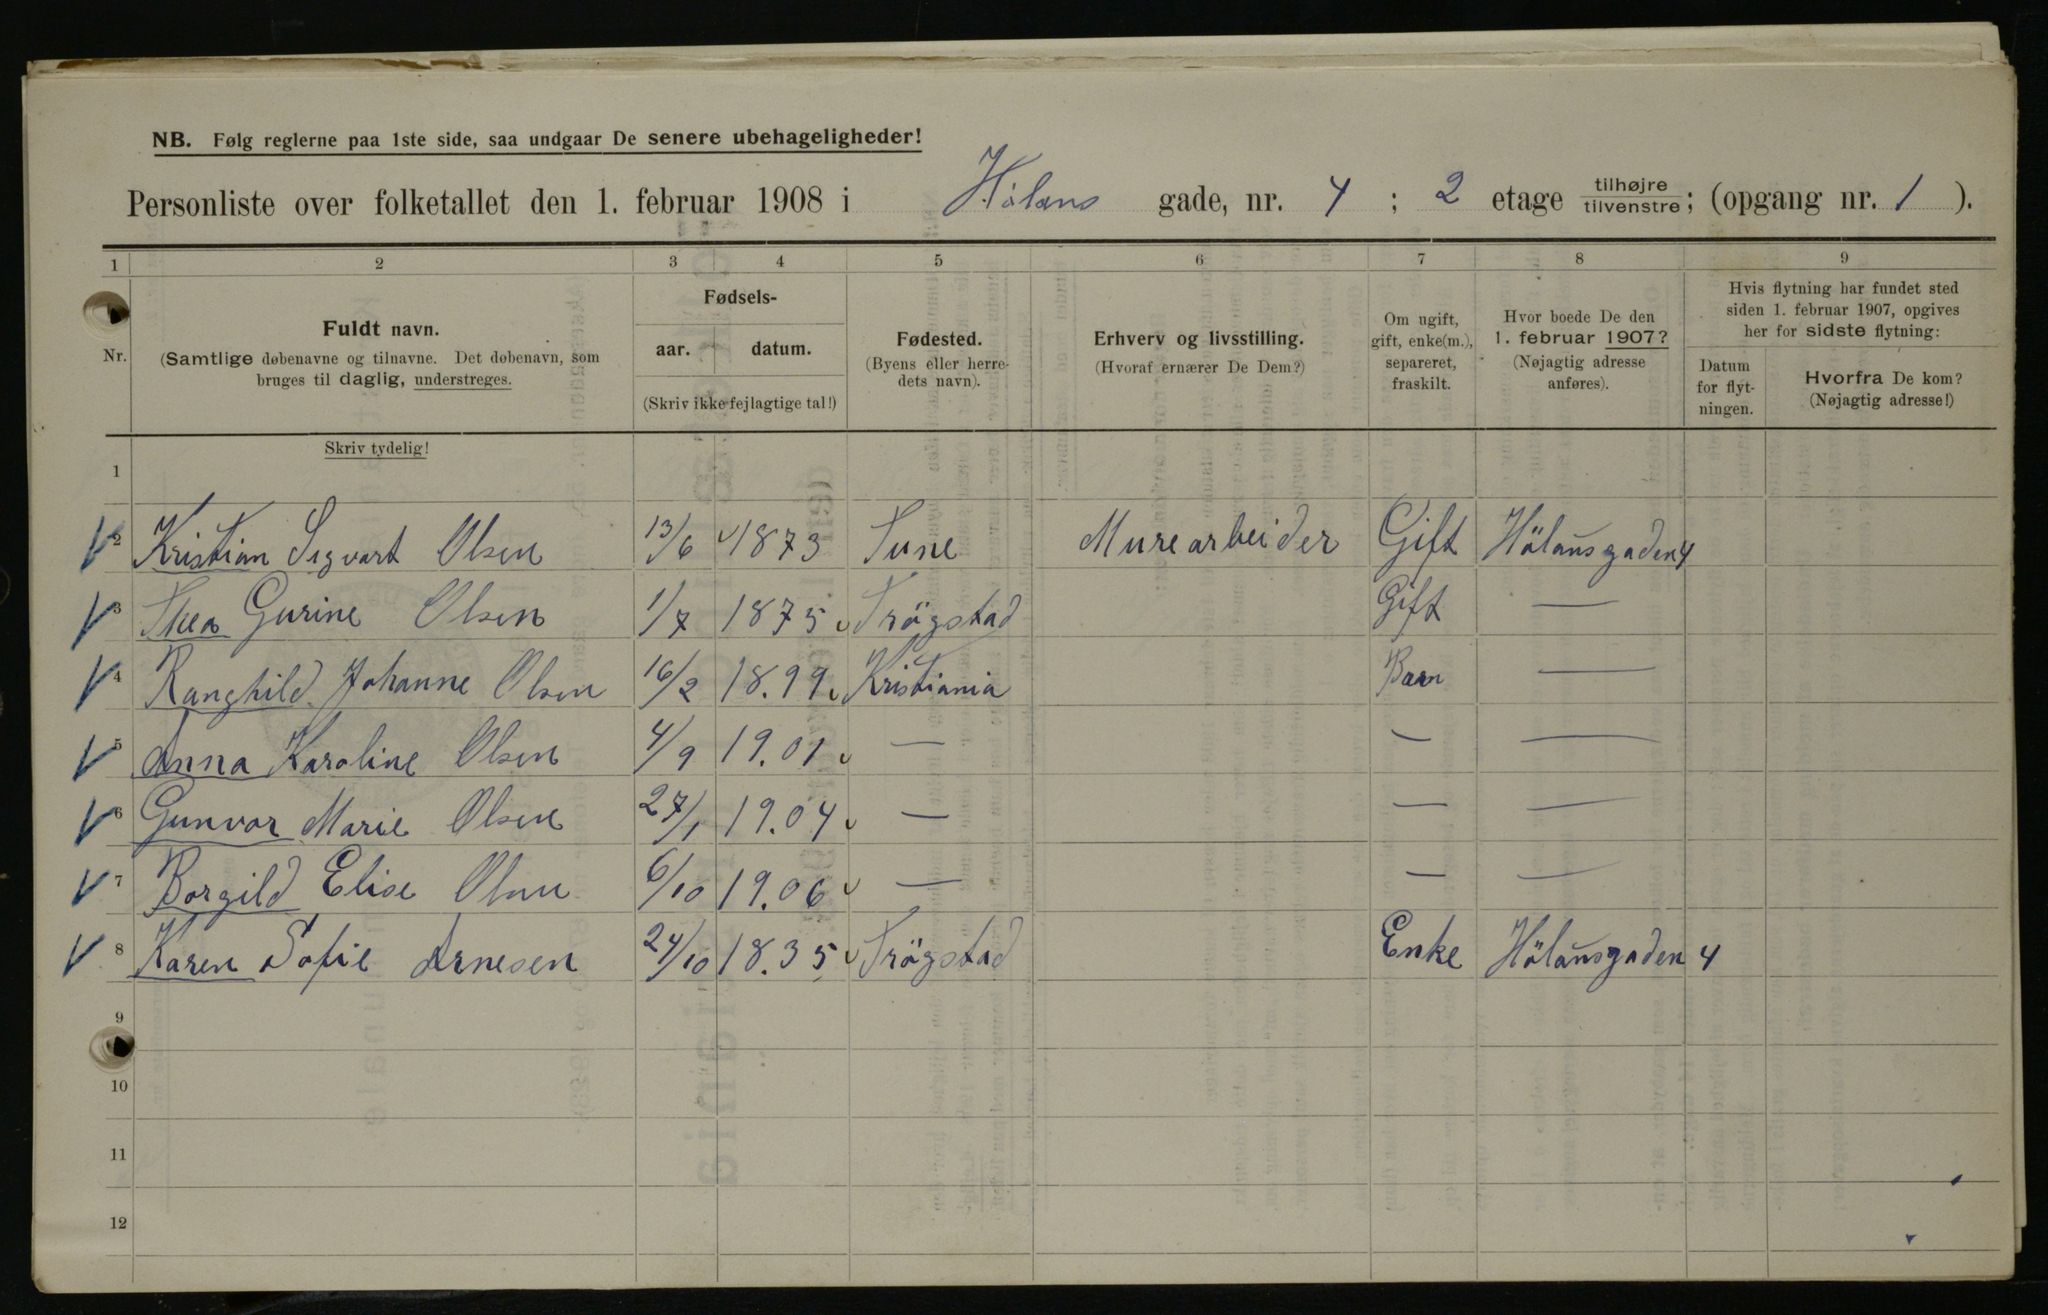 NB. Følg reglerne paa 1ste side, saa undgaar De senere ubehageligheder!
Personliste over folketallet den 1. februar 1908 i Hölans gade, nr. 4 ; 2 etage tilhøjre tilvenstre; (opgang nr. 1 ).
1 2 3 4 5 6 7 8 9
Nr. Fuldt navn. (Samtlige døbenavne og tilnavne. Det døbenavn, som bruges til daglig, understreges.
Fødsels-
aar. datum.
(Skriv ikke fejlagtige tal!)
Fødested. (Byens eller herredets navn).
Erhverv og livsstilling.
(Hvoraf ernærer De Dem?)
Om ugift, gift, enke(m.), separeret, fraskilt.
Hvor boede De den 1. februar 1907? (Nøjagtig adresse anføres).
Hvis flytning har fundet sted siden 1. februar 1907, opgives her for sidste flytning:
Datum for flytningen.
Hvorfra De kom?
(Nøjagtig adresse!)
Skriv tydelig!
1
2 Kristian Sigvart Olsen 13/6 1873 Tune Murearbeider Gift Hölansgaden 4
3 Thea Gurine Olsen 1/7 1875 Trögstad Gift —
4 Ranghild Johanne Olsen 16/2 18.99 Kristiania Barn —
5 Anna Karoline Olsen 4/9 19.01 — — —
6 Gunvor Marie Olsen 27/1 19.04 — — —
7 Borgild Elise Olsen 6/10 19.06 — — —
8 Karen Sofie Arnesen 24/10 18.35 Trögstad Enke Hölansgaden 4
9
10
11
12